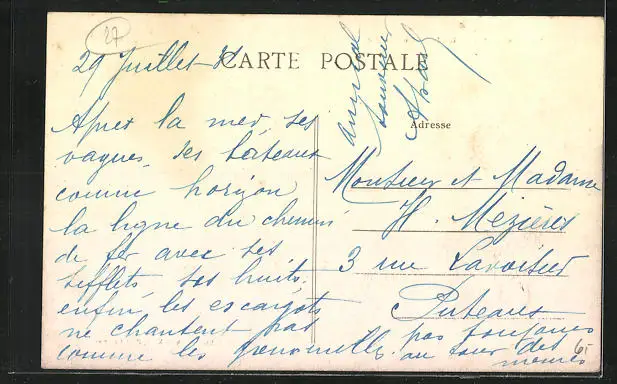 27
29 Juillet
CARTE POSTALE
Adresse
Après la mer, ses
vagues, ses bateaux
comme horizon
la ligne du chemin
de fer avec ses
sifflets ses bruits,
enfin les escargots
ne chantent pas
comme les grenouilles
Monsieur et Madame
H. Mezières
3 rue Lavoisier
Puteaux
pas toujours
au tour des
mêmes